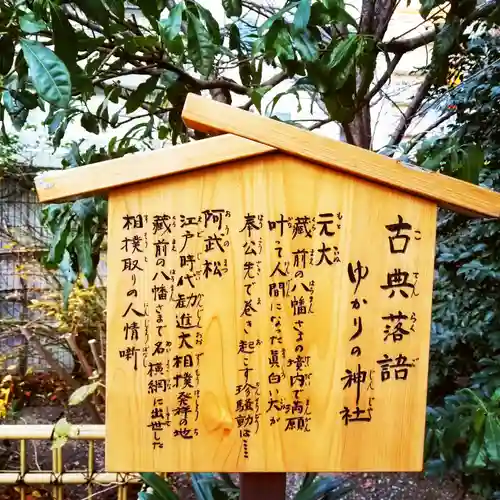 古典落語
ゆかりの神社
元犬
蔵前の八幡の境内で満願
叶って人間になった真白い犬が
奉公先で巻き起す珍騒動は…
阿武松
江戸時代勧進大相撲発祥の地
蔵前の八幡さまで名横綱に出世した
相撲取りの人情噺